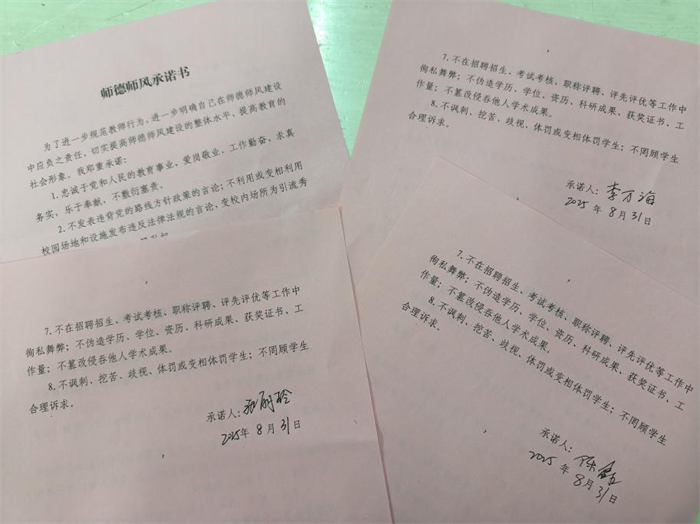 师德师风承诺书
为了进一步规范教师行为，进一步明确自己在师德师风建设
中应负之责任，切实提高师德师风建设的整体水平，提高教育的
社会形象。我郑重承诺：
1.忠诚于党和人民的教育事业，爱岗敬业，工作勤奋、求真
务实，乐于奉献，不敷衍塞责。
2.不发表违背党的路线方针政策的言论；不利用或变相利用
校园场地和设施发布违反法律法规的言论；变校内场所为引流秀
7.不在招聘招生、考试考核、职称评聘、评先评优等工作中
徇私舞弊；不伪造学历、学位、资历、科研成果、获奖证书、工
作量；不篡改侵吞他人学术成果。
8.不讽刺、挖苦、歧视、体罚或变相体罚学生；不罔顾学生
合理诉求。
承诺人：李万海
2025年8月31日
7.不在招聘招生、考试考核、职称评聘、评先评优等工作中
徇私舞弊；不伪造学历、学位、资历、科研成果、获奖证书、工
作量；不篡改侵吞他人学术成果。
8.不讽刺、挖苦、歧视、体罚或变相体罚学生；不罔顾学生
合理诉求。
承诺人：
2025年8月31日
7.不在招聘招生、考试考核、职称评聘、评先评优等工作中
徇私舞弊；不伪造学历、学位、资历、科研成果、获奖证书、工
作量；不篡改侵吞他人学术成果。
8.不讽刺、挖苦、歧视、体罚或变相体罚学生；不罔顾学生
合理诉求。
承诺人：陈鑫
2025年8月31日